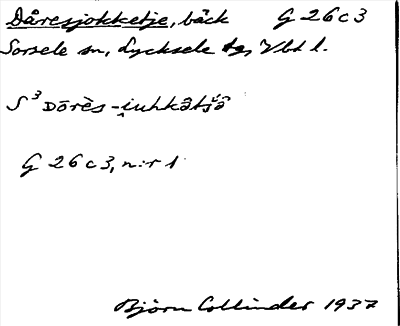 Dåresjokketje, bäck G 26 c 3
Sorsele sn, Lycksele tg, Vbt l.
S³ Dōrès-i̯uhkātšā
G 26 c 3, n:r 1
Björn Collinder 1937